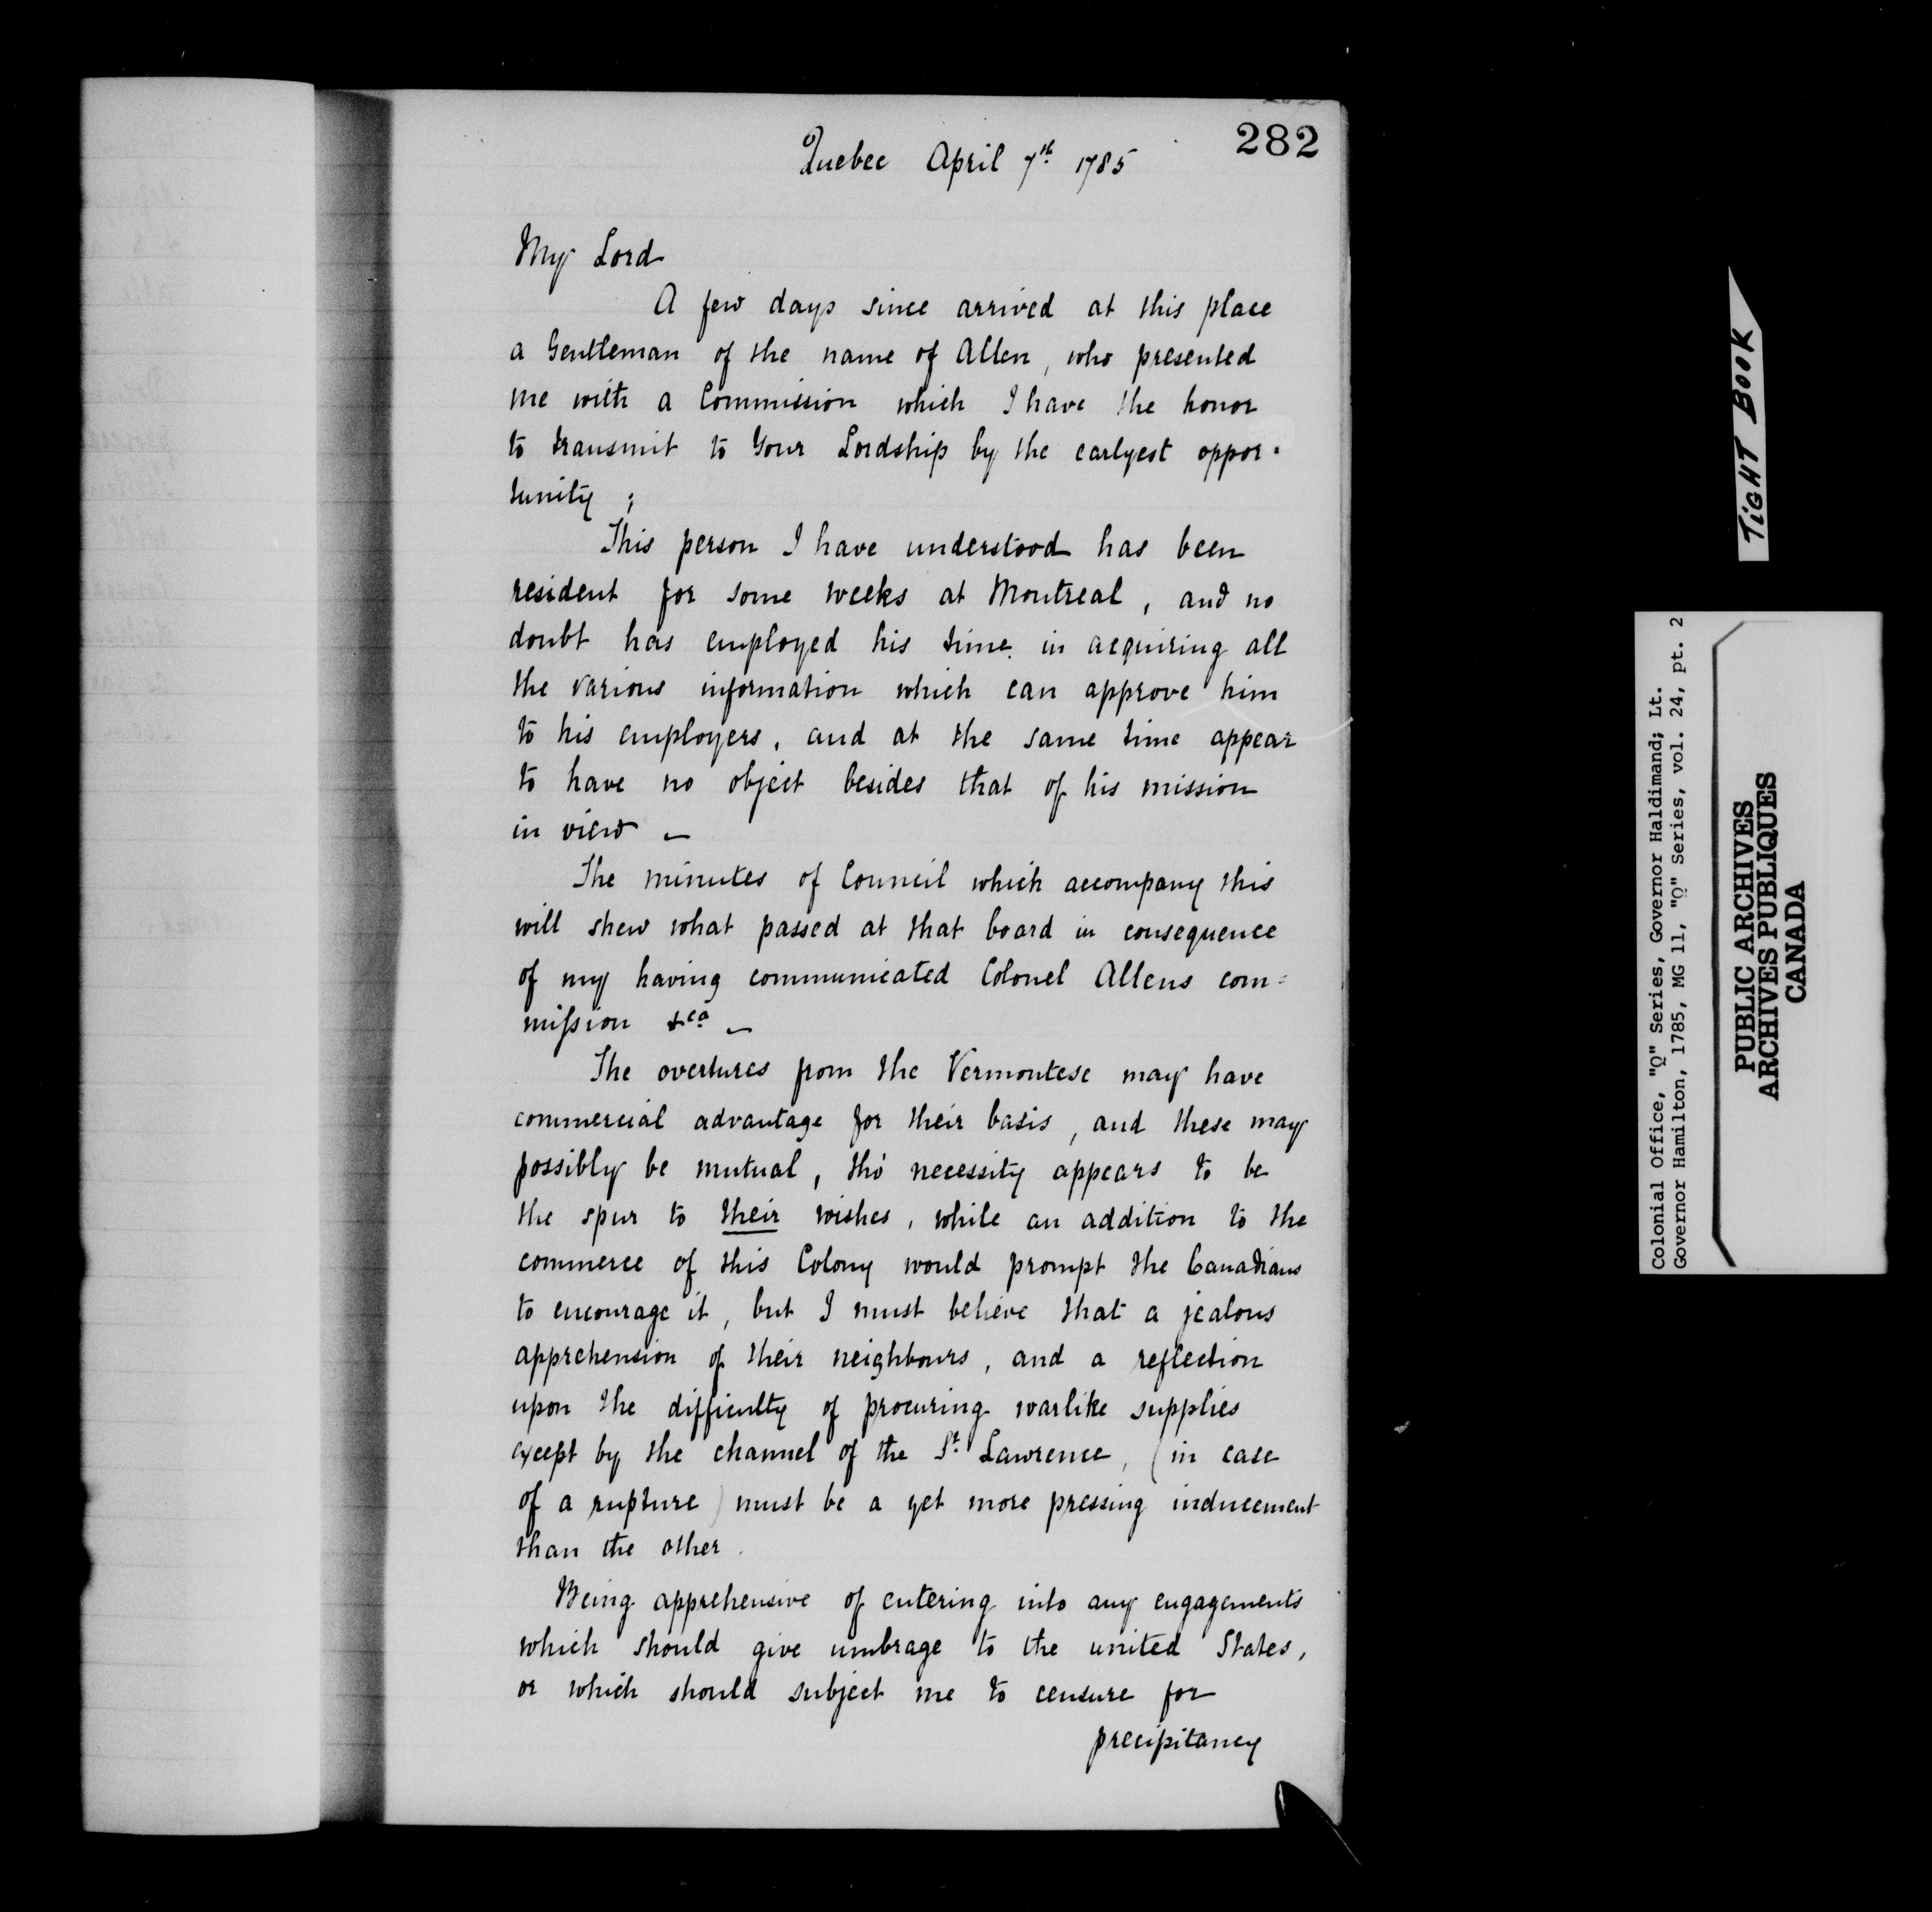 282
Quebec April 7th 1785
My Lord
A few days since arrived at this place
a Gentleman of the name of Allen, who presented
me with a Commission which I have the honor
to transmit to Your Lordship by the earlyest oppor-
tunity ;
This person I have understood has been
resident for some weeks at Montreal, and no
doubt has employed his time in acquiring all
the various information which can approve him
to his employers, and at the same time appear
to have no object besides that of his mission
in view —
The minutes of Council which accompany this
will shew what passed at that board in consequence
of my having communicated Colonel Allens com=
mission &ca —
The overtures from the Vermontese may have
commercial advantage for their basis, and these may
possibly be mutual, tho' necessity appears to be
the spur to their wishes, while an addition to the
commerce of this Colony would prompt the Canadians
to encourage it, but I must believe that a jealous
apprehension of their neighbours, and a reflection
upon the difficulty of procuring warlike supplies
except by the channel of the St Lawrence, (in case
of a rupture) must be a yet more pressing inducement
than the other.
Being apprehensive of entering into any engagements
which should give umbrage to the united States,
or which should subject me to censure for
precipitancy
TIGHT BOOK
Colonial Office, "Q" Series, Governor Haldimand; Lt.
Governor Hamilton, 1785, MG 11, "Q" Series, vol. 24, pt. 2
PUBLIC ARCHIVES
ARCHIVES PUBLIQUES
CANADA